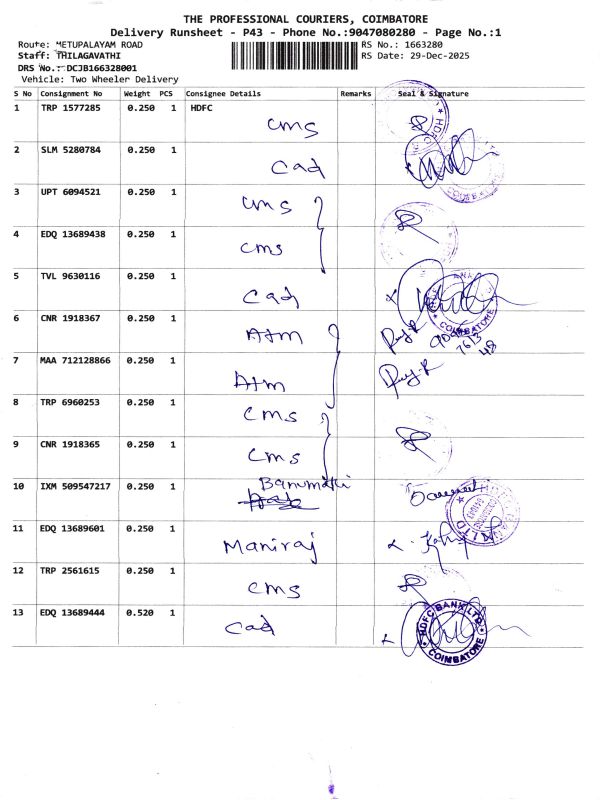 THE PROFESSIONAL COURIERS, COIMBATORE
Delivery Runsheet - P43 - Phone No.:9047080280 - Page No.:1
Route: METUPALAYAM ROAD RS No.: 1663280
Staff: THILAGAVATHI RS Date: 29-Dec-2025
DRS No.: DCJB166328001
Vehicle: Two Wheeler Delivery
S No Consignment No Weight PCS Consignee Details Remarks Seal & Signature
1 TRP 1577285 0.250 1 HDFC
cms
2 SLM 5280784 0.250 1
Cad
3 UPT 6094521 0.250 1 cms
4 EDQ 13689438 0.250 1
cms
5 TVL 9630116 0.250 1
Cad
6 CNR 1918367 0.250 1
Atm
7 MAA 712128866 0.250 1
Atm
8 TRP 6960253 0.250 1
cms
9 CNR 1918365 0.250 1
cms
10 IXM 509547217 0.250 1
11 EDQ 13689601 0.250 1
Maniraj
12 TRP 2561615 0.250 1
cms
13 EDQ 13689444 0.520 1
Cad
HDFC BANK LTD
COIMBATORE